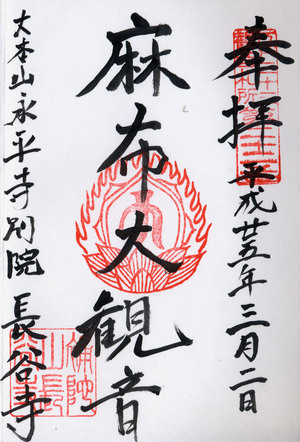 奉拝
平成廿五年三月二日
麻布大観音
大本山永平寺別院 長谷寺